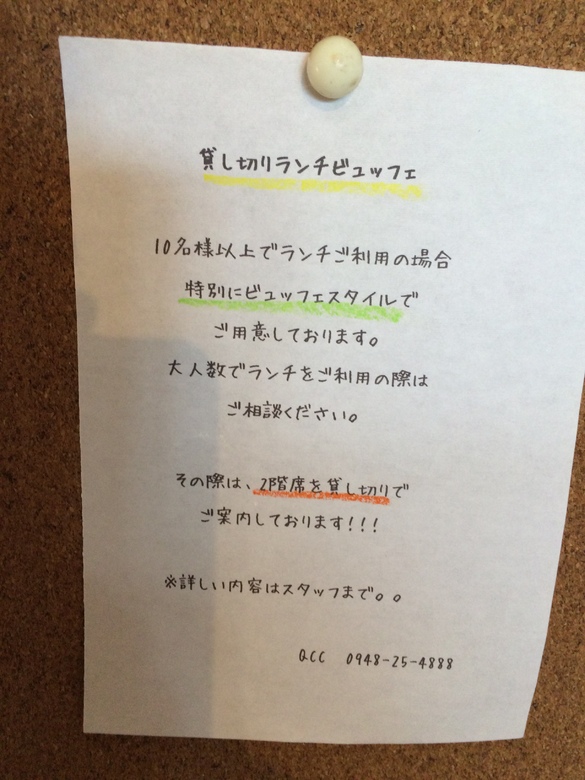 貸し切りランチビュッフェ
10名様以上でランチご利用の場合
特別にビュッフェスタイルで
ご用意しております。
大人数でランチをご利用の際は
ご相談ください。
その際は、2階席を貸し切りで
ご案内しております!!!
※詳しい内容はスタッフまで。。
QCC 0948-25-4888